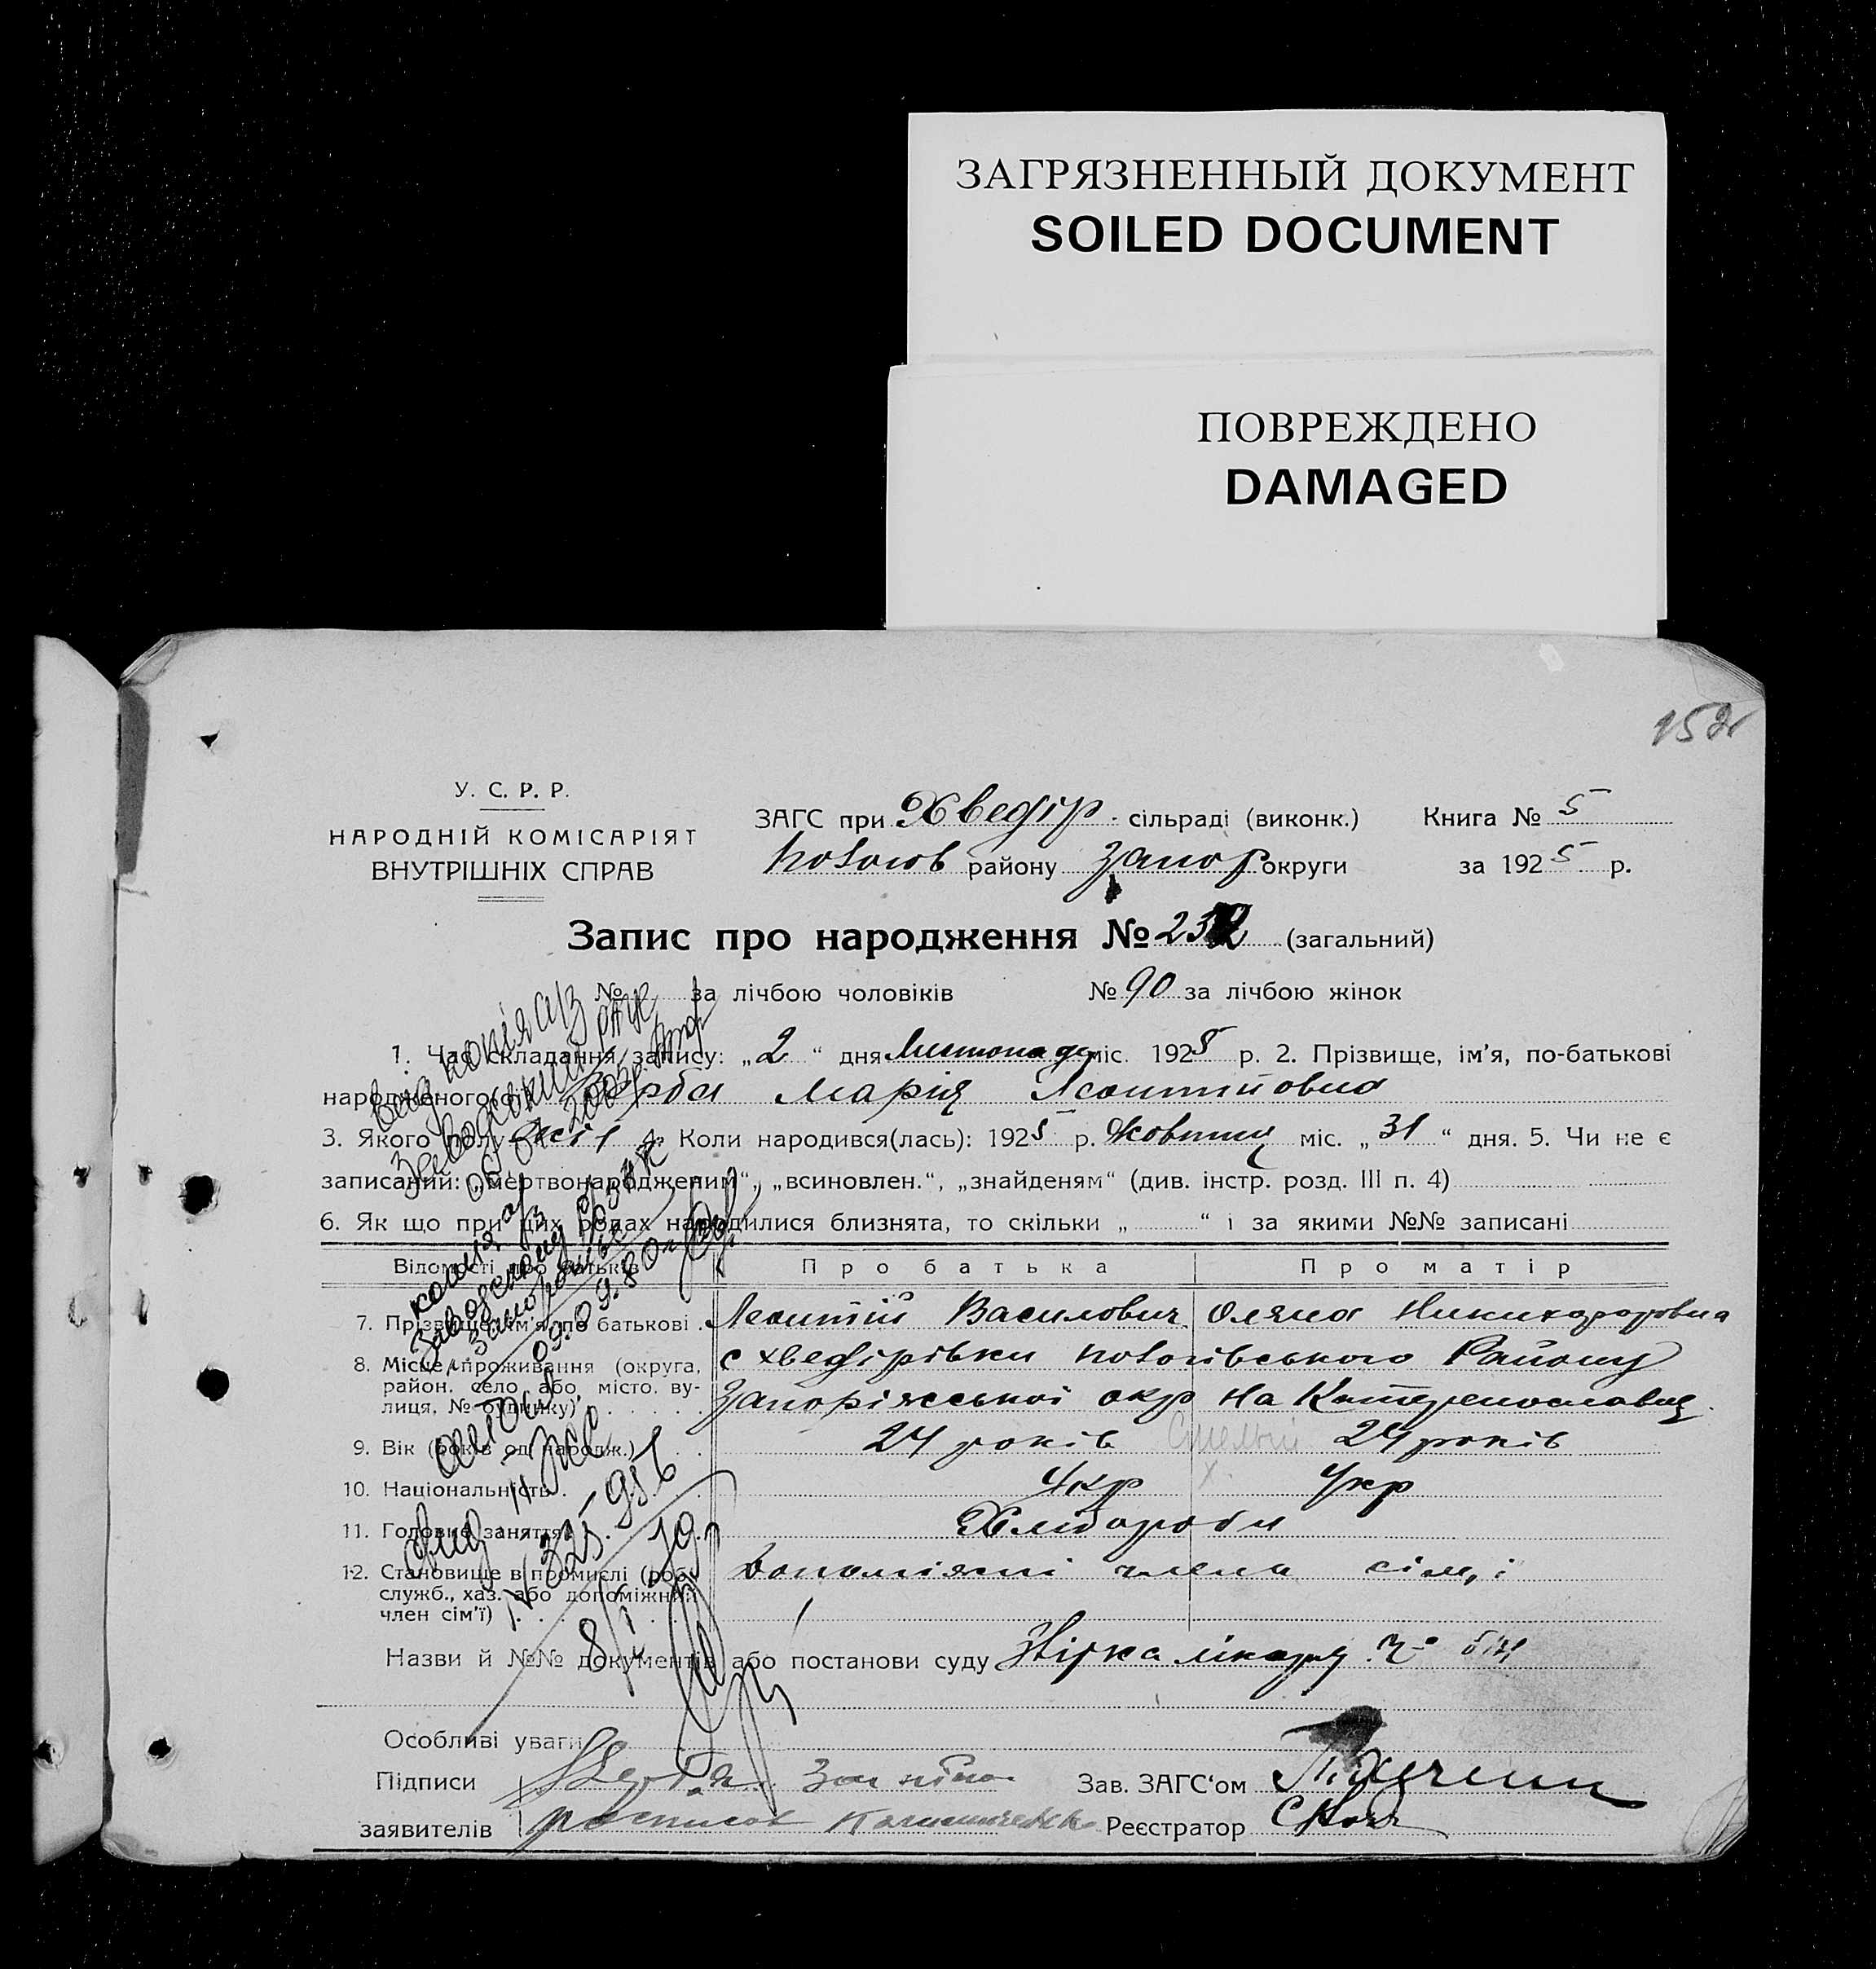 ЗАГРЯЗНЕННЫЙ ДОКУМЕНТ
SOILED DOCUMENT
ПОВРЕЖДЕНО
DAMAGED
152
У. С. Р. Р.
НАРОДНІЙ КОМІСАРІЯТ
ВНУТРІШНІХ СПРАВ
ЗАГС при Хведір - сільраді (виконк.) Книга № 5
Пологів району Запор округи за 1925 р.
Запис про народження № 232 (загальний)
№ за лічбою чоловіків № 90 за лічбою жінок
1. Час складання запису: „2“ дня Листопада міс. 1925 р. 2. Прізвище, ім'я, по-батькові
народженого(ої) Верба Марія Леонтійовна
3. Якого полу жін 4. Коли народився(лась): 1925 р. Жовтня міс. „31“ дня. 5. Чи не є
записаний: „мертвонародженим“, „всиновлен.“, „знайденям“ (див. інстр. розд. III п. 4)
6. Як що при цих родах народилися близнята, то скільки „ “ і за якими №№ записані
Відомості про батьків Про батька Про матір
7. Прізвище, ім'я, по батькові Леонтій Василович Оляна Никихоровна
8. Місце проживання (округа, район, село або місто, вулиця, № будинку) с Хведірівки Пологівського Району
Запоріжської окр на Катеринославщ.
9. Вік (років од народж.) 24 років 24 років
10. Національність Укр Укр
11. Головне заняття Хлібороби
12. Становище в промислі (роб., служб., хаз. або допоміжний член сім'ї) Допоміжні члени сім,ї
Назви й №№ документів або постанови суду Звірка лікаря
Особливі уваги
Підписи Верба За нього Зав. ЗАГС'ом
заявителів росписов Реєстратор
Вид копія а/з
Заводський
копія а/з
Заводському
09.09.80
N 325-956